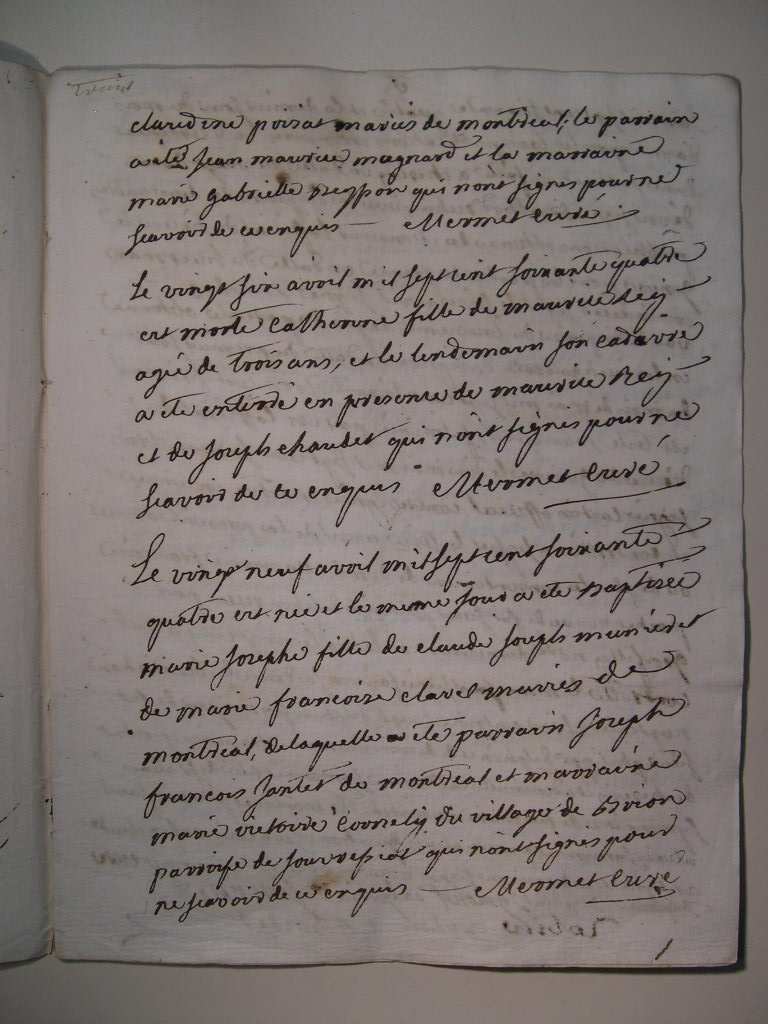 claudine poisat mariés de montreal, le parrain
a été Jean maurice magnard et la marraine
marie gabrielle Reysson qui n'ont signés pour ne
scavoir de ce enquis — Mermet Curé
Le vingt six avril mil sept cent soixante quatre
est morte Catherine fille de maurice Rey
agée de trois ans, et le lendemain son cadavre
a ete enterré en presence de maurice Rey
et de Joseph chaudet qui n'ont signés pour ne
scavoir de ce enquis Mermet Curé
Le vingt neuf avril mil sept cent soixante
quatre est née et le meme Jour a ete baptisée
marie Josephe fille de claude Joseph munier et
de marie francoise clavel mariés de
montreal, de laquelle a ete parrain Joseph
francois Jantet de montreal et marraine
marie victoire Cornely du village de Brion
parroisse de qui n'ont signés pour
ne scavoir de ce enquis — Mermet Curé